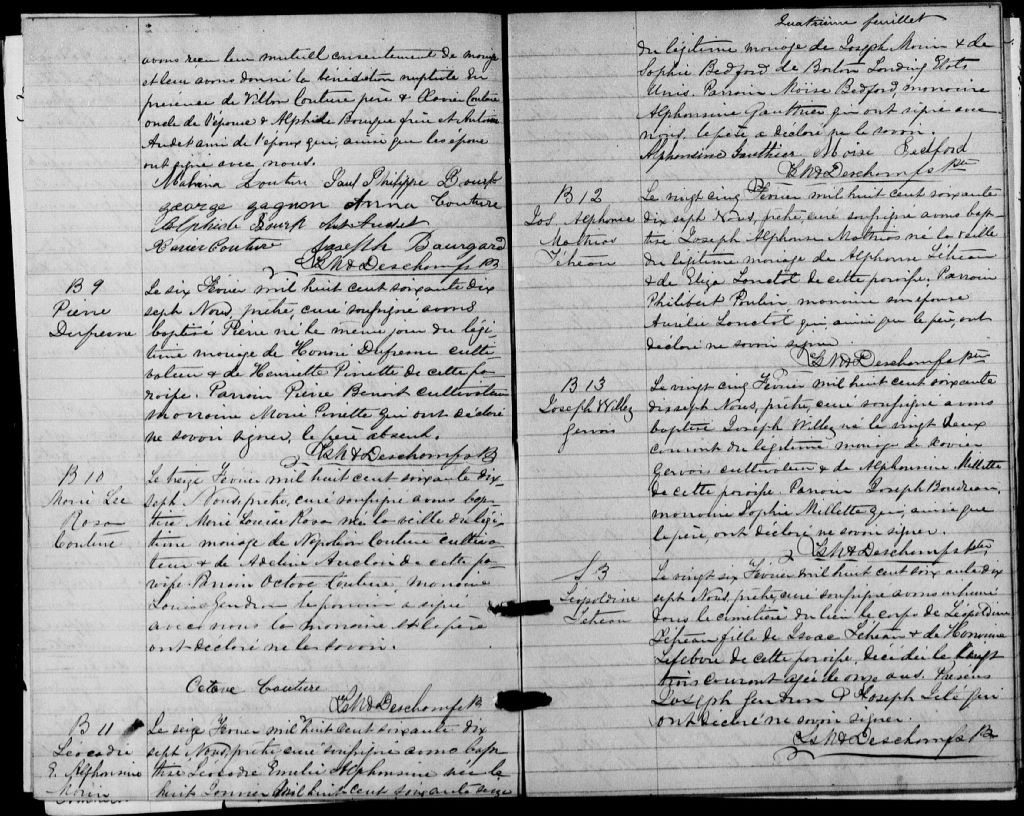 avons reçu leur mutuel consentement de mariage
et leur avons donné la bénédiction nuptiale en
présence de Couture père & Xavier Couture
oncle de l'épouse & Alphide Bourque frère et Antoine
Audet ami de l'époux qui, ainsi que les époux
ont signé avec nous.
Couture Paul Philippe Bourk
george gagnon Anna Couture
Alphide Bourk Ant Audet
Xavier Couture Joseph Baurgard
Ls M A Deschamps Ptr
B 9
Pierre
Dufresne
Le six Février mil huit cent soixante dix
sept Nous, prêtre, curé soussigné avons
baptisé Pierre né le même jour du légi-
time mariage de Honoré Dufresne culti-
vateur & de Henriette Pinette de cette pa-
roisse. Parrain Pierre Benoit cultivateur
marraine Marie Pinette qui ont déclaré
ne savoir signer, le père absent.
Ls M A Deschamps Ptr
B 10
Marie Lse
Rosa
Couture
Le treize Février mil huit cent soixante dix-
sept Nous, prêtre, curé soussigné avons bap-
tisé Marie Louise Rosa née la veille du légi-
time mariage de Napoléon Couture cultiva-
teur & de Adeline Auclair de cette pa-
roisse Parrain Octave Couture, marraine
Louise Gendron le parrain a signé
avec nous la marraine et le père
ont déclaré ne le savoir.
Octave Couture
Ls M A Deschamps Ptr
B 11
Léocadie
E. Alphonsine
Morin
Le seize Février mil huit cent soixante dix
sept Nous, prêtre, curé soussigné avons bap-
tisé Léocadie Emélie Alphonsine née le
huit Janvier mil huit cent soixante seize
Quatrième feuillet
du légitime mariage de Joseph Morin & de
Sophie Bedford de Barton Landing Etats
Unis. Parrain Moise Bedford, marraine
Alphonsine Gauthier qui ont signé avec
nous, le père a déclaré ne le savoir.
Alphonsine Gauthier Moise Bedford
Ls M A Deschamps Ptr
B 12
Jos Alphonse
Mathias
Létreau
Le vingt cinq Février mil huit cent soixante
dix sept Nous, prêtre, curé soussigné avons bap-
tisé Joseph Alphonse Mathias né la veille
du légitime mariage de Alphonse Létreau
& de Eliza Lanctot de cette paroisse. Parrain
Philibert Poulin marraine son épouse
Aurélie Lanctot qui, ainsi que le père, ont
déclaré ne savoir signer.
Ls M A Deschamps Ptr
B 13
Joseph Willez
Gervais
Le vingt cinq Février mil huit cent soixante
dix sept Nous, prêtre, curé soussigné avons
baptisé Joseph Willez né le vingt deux
courant du légitime mariage de Xavier
Gervais cultivateur & de Alphonsine Millette
de cette paroisse. Parrain Joseph Boudreau,
marraine Sophie Millette qui, ainsi que
le père, ont déclaré ne savoir signer.
Ls M A Deschamps Ptr
S 3
Léopoldine
Létreau
Le vingt six Février mil huit cent soixante dix
sept Nous, prêtre, curé soussigné avons inhumé
dans le cimetière du lieu le corps de Léopoldine
Létreau fille de Isaac Létreau & de Honorine
Lefebvre de cette paroisse, décédée le vingt
trois courant agée de onze ans. Présens
Joseph Gendron & Joseph qui
ont déclaré ne savoir signer.
Ls M A Deschamps Ptr